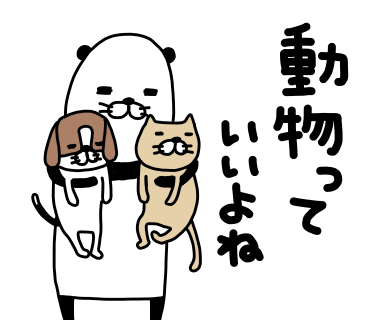 動物って
いいよね